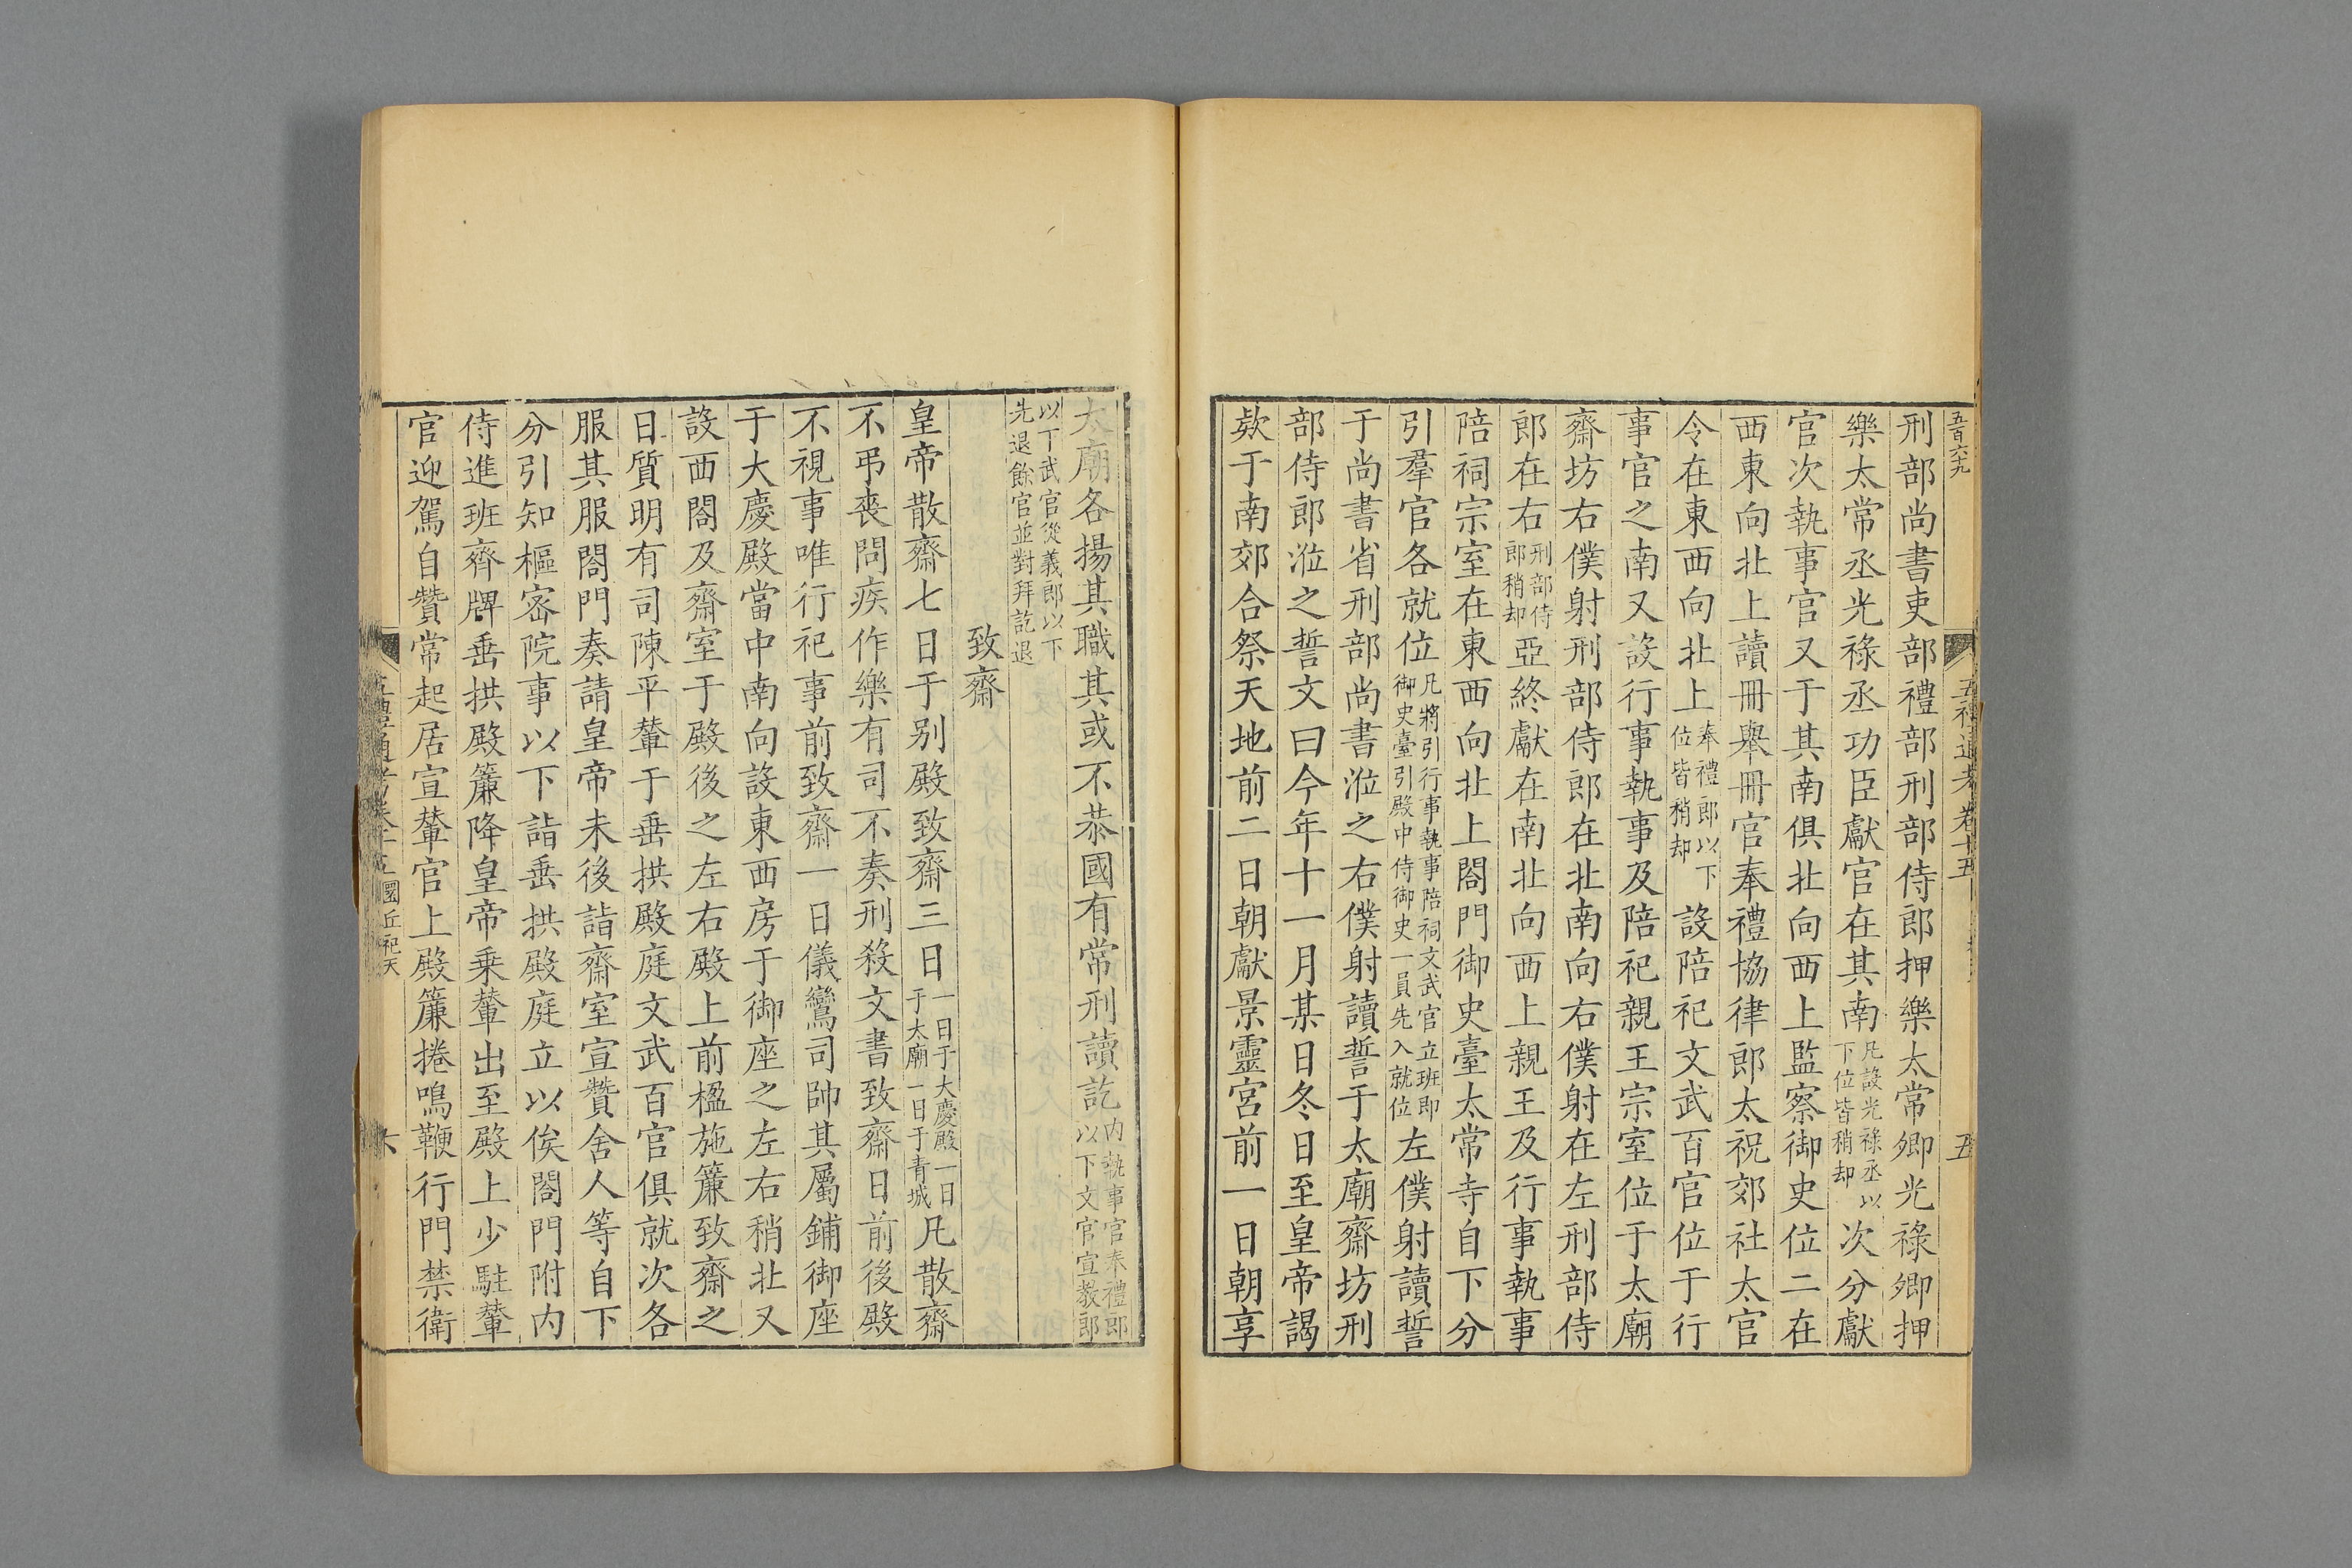 五百六十九
五禮通考 卷十五
五
刑部尚書吏部禮部刑部侍郎押樂太常卿光祿卿押
樂太常丞光祿丞功臣獻官在其南凡設光祿丞以下位皆稍却次分獻
官次執事官又于其南俱北向西上監察御史位二在
西東向北上讀冊舉冊官奉禮協律郎太祝郊社太官
令在東西向北上奉禮郎以下位皆稍却設陪祀文武百官位于行
事官之南又設行事執事及陪祀親王宗室位于太廟
齋坊右僕射刑部侍郎在北南向右僕射在左刑部侍
郎在右刑部侍郎稍却亞終獻在南北向西上親王及行事執事
陪祠宗室在東西向北上閤門御史臺太常寺自下分
引羣官各就位凡將引行事執事陪祠文武官立班即御史臺引殿中侍御史一員先入就位左僕射讀誓
于尚書省刑部尚書涖之右僕射讀誓于太廟齋坊刑
部侍郎涖之誓文曰今年十一月某日冬日至皇帝謁
欵于南郊合祭天地前二日朝獻景靈宮前一日朝享
太廟各揚其職其或不恭國有常刑讀訖内執事官奉禮郎以下文官宣教郎
以丅武官從義郎以下先退餘官並對拜訖退
致齋
皇帝散齋七日于别殿致齋三日一日于大慶殿一日于太廟一日于青城凡散齋
不弔喪問疾作樂有司不奏刑殺文書致齋日前後殿
不視事唯行祀事前致齋一日儀鸞司帥其屬鋪御座
于大慶殿當中南向設東西房于御座之左右稍北又
設西閤及齋室于殿後之左右殿上前楹施簾致齋之
日質明有司陳平輦于垂拱殿庭文武百官俱就次各
服其服閤門奏請皇帝未後詣齋室宣贊舍人等自下
分引知樞密院事以下詣垂拱殿庭立以俟閤門附内
侍進班齊牌垂拱殿簾降皇帝乗輦出至殿上少駐輦
官迎駕自贊常起居宣輦官上殿簾捲鳴鞭行門禁衛
五禮通考卷十五 圜丘祀天
六